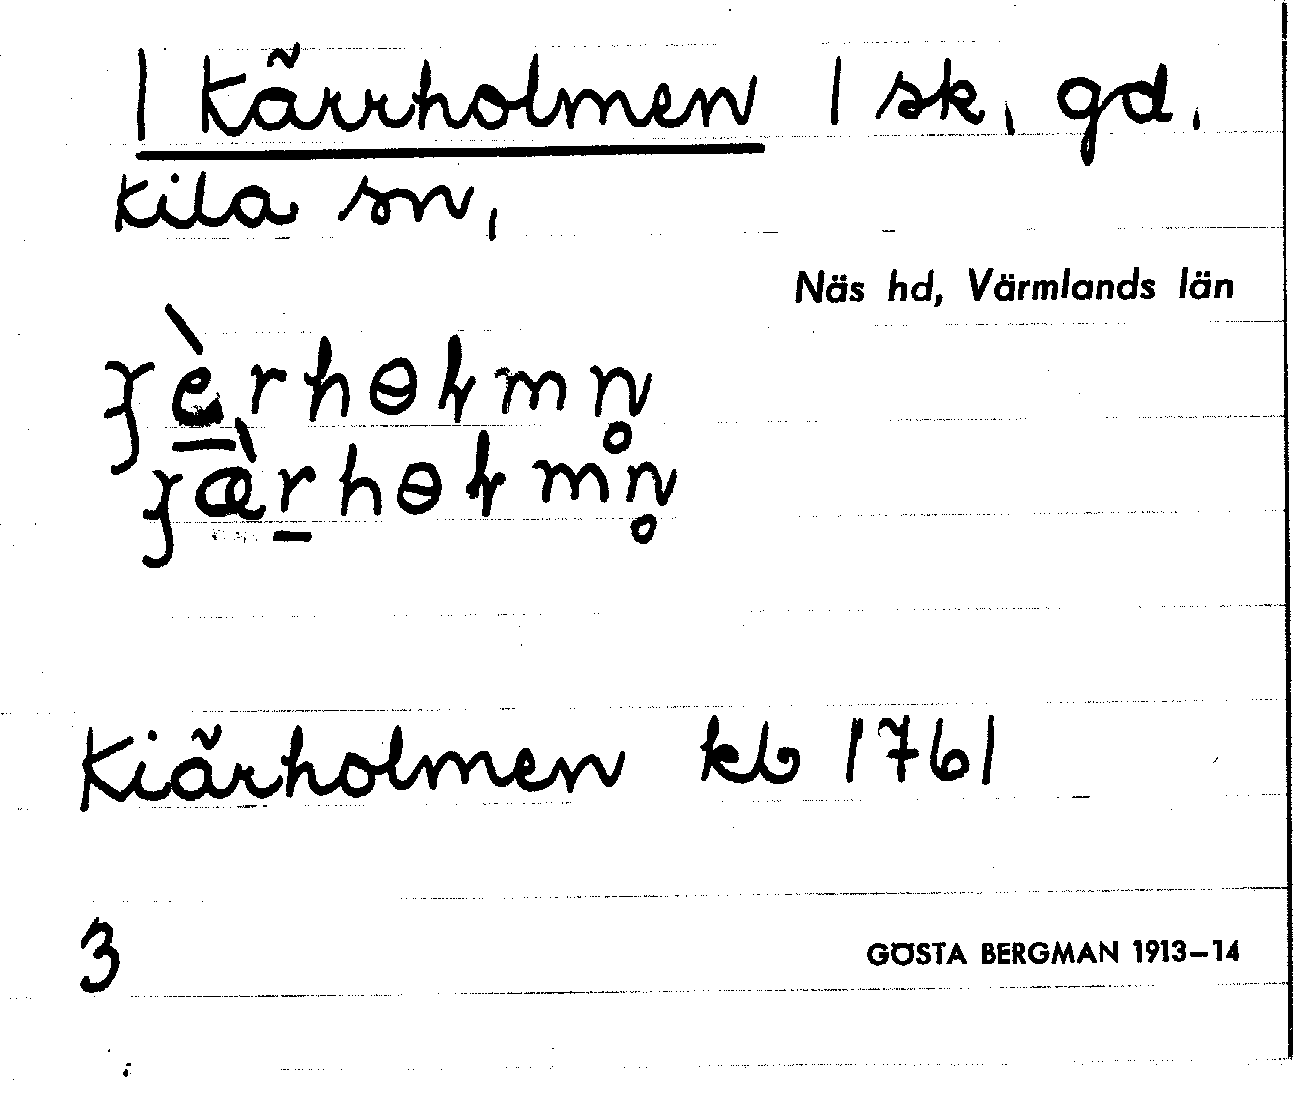 | Kärrholmen | sk, gd,
Kila sn,
Näs hd, Värmlands län
Kiärholmen kb 1761
3
GÖSTA BERGMAN 1913–14